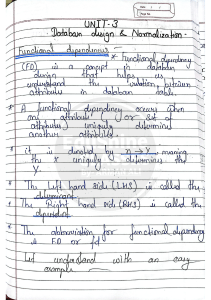 UNIT-3
Database design & Normalization.
functional dependencies
* functional dependency
(FD) is a concept in database
design that helps us
understand the relation between
attributes in database table.
* A functional dependency occurs when
one attribute or set of
attributes uniquely determines
another attribute.
* it is denoted by x → y, meaning
the x uniquely determines the
y.
* The Left hand side (LHS) is called the
determinant
* The Right hand side (RHS) is called the
dependent.
* The abbreviation for functional dependency
is FD or fd
Let understand with an easy
example